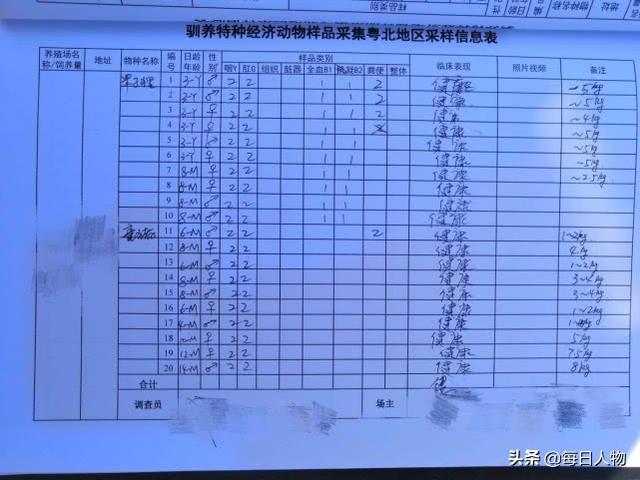 驯养特种经济动物样品采集粤北地区采样信息表
养殖场名称/饲养量 地址 物种名称 编号 日龄年龄 性别 样品类别 临床表现 照片视频 备注
咽Y 肛G 组织 脏器 全血B1 抗凝B2 粪便 整体
果子狸 1 3-Y ♂ 2 2 1 1 2 健康 ~5kg
2 3-Y ♂ 2 2 1 1 2 健康 ~5kg
3 3-Y ♀ 2 2 1 1 2 健康 ~4kg
4 3-Y ♀ 2 2 1 1 健康 ~5kg
5 3-Y ♂ 2 2 1 1 健康 ~5kg
6 3-Y ♀ 2 2 1 1 健康 ~5kg
7 8-M ♀ 2 2 1 1 健康 ~2.5kg
8 8-M ♀ 2 2 1 1 健康
9 8-M ♂ 2 2 1 1 健康
10 8-M ♂ 2 2 1 1 健康
11 6-M ♂ 2 2 2 健康
12 8-M ♀ 2 2 健康 4kg
13 6-M ♂ 2 2 健康 1~2kg
14 8-M ♀ 2 2 健康
15 8-M ♂ 2 2 健康 3~4kg
16 6-M ♀ 2 2 健康 1~2kg
17 ♂ 2 2 健康
18 ♀ 2 2 健康 5kg
19 12-M ♀ 2 2 健康 7.5kg
20 14-M ♂ 2 2 健康 8kg
合计
调查员 场主
头条 @每日人物